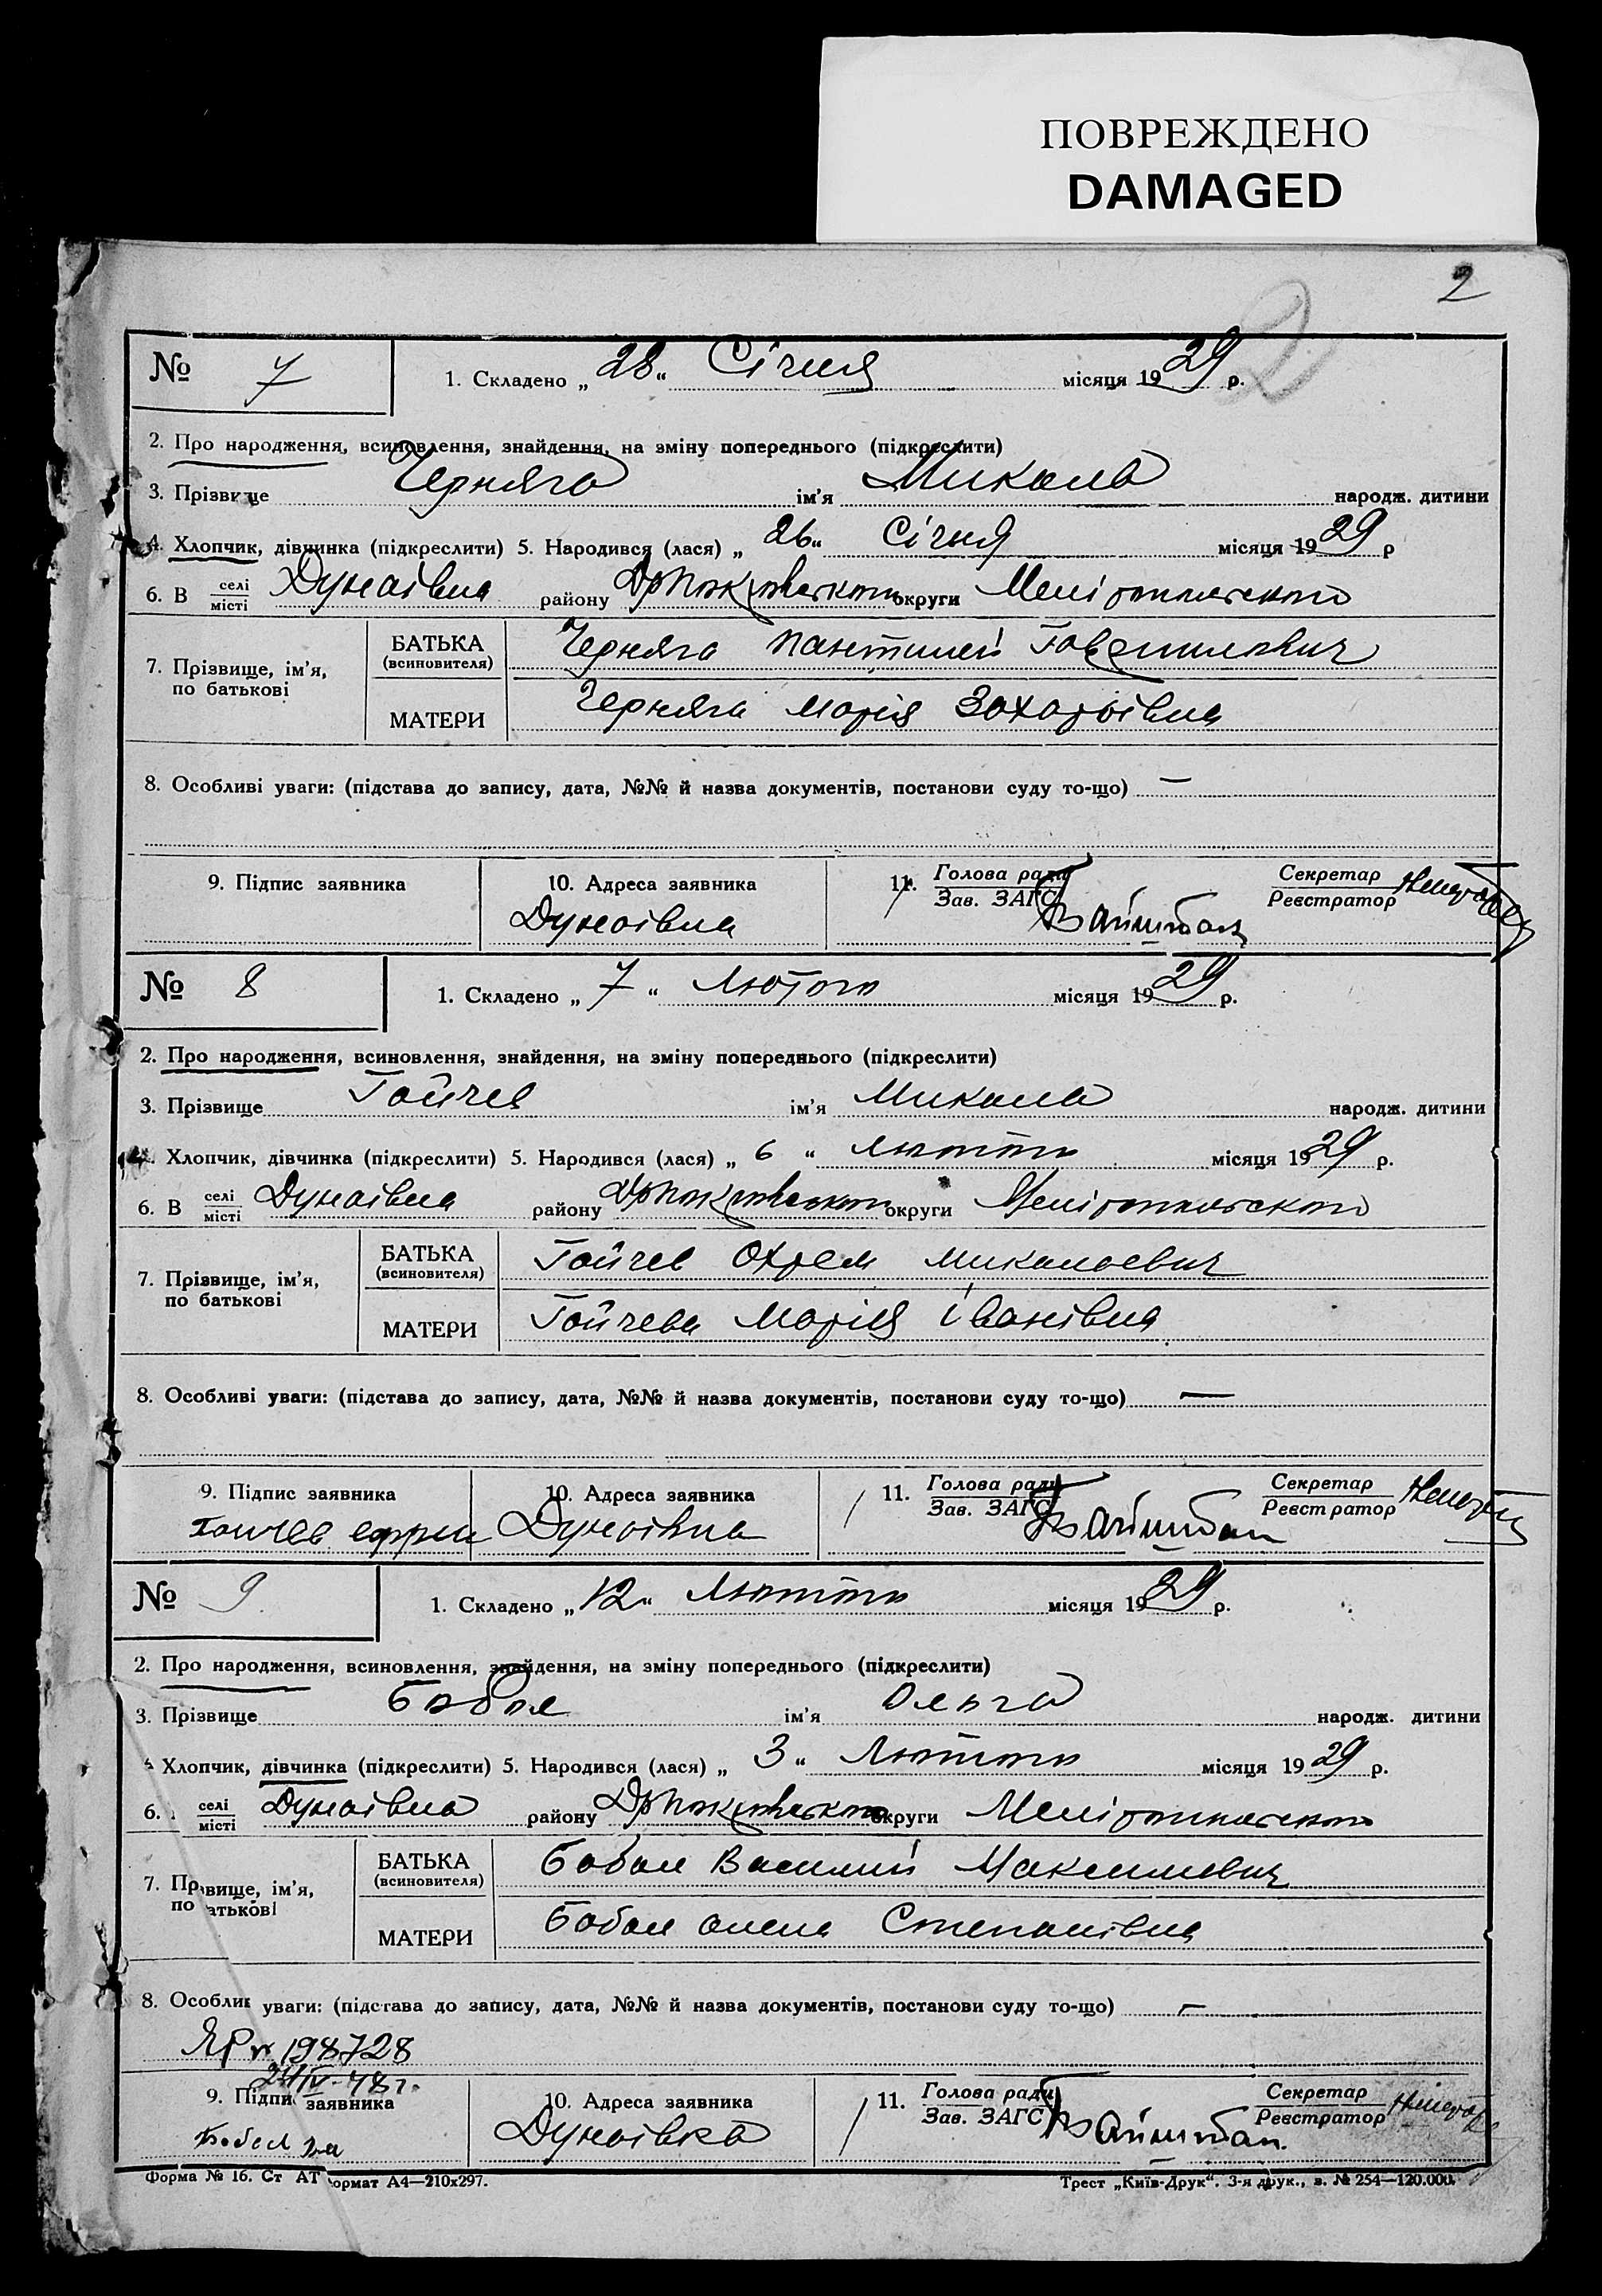 ПОВРЕЖДЕНО
DAMAGED
2
2
№ 7 1. Складено „ 28 “ Січня місяця 1929 р.
2. Про народження, всиновлення, знайдення, на зміну попереднього (підкреслити)
3. Прізвище Черняга ім'я Микола народж. дитини
4. Хлопчик, дівчинка (підкреслити) 5. Народився (лася) „ 26 “ Січня місяця 1929 р
6. В селі місті Дунаівка району округи Мелітопольського
7. Прізвище, ім'я, по батькові
БАТЬКА (всиновителя) Черняга Пантилей Гаврилович
МАТЕРИ Черняга Марія Захарьівна
8. Особливі уваги: (підстава до запису, дата, №№ й назва документів, постанови суду то-що) —
9. Підпис заявника 10. Адреса заявника 11. Голова ради Зав. ЗАГС Секретар Реєстратор
Дунаівка
№ 8 1. Складено „ 7 “ Лютого місяця 1929 р.
2. Про народження, всиновлення, знайдення, на зміну попереднього (підкреслити)
3. Прізвище Гайчев ім'я Микола народж. дитини
4. Хлопчик, дівчинка (підкреслити) 5. Народився (лася) „ 6 “ Лютого місяця 1929 р.
6. В селі місті Дунаівка району округи Мелітопольського
7. Прізвище, ім'я, по батькові
БАТЬКА (всиновителя) Гайчев Охрем Миколаевич
МАТЕРИ Гайчева Марія Іванівна
8. Особливі уваги: (підстава до запису, дата, №№ й назва документів, постанови суду то-що) —
9. Підпис заявника 10. Адреса заявника 11. Голова ради Зав. ЗАГС Секретар Реєстратор
Дунаівка
№ 9 1. Складено „ 12 “ Лютого місяця 1929 р.
2. Про народження, всиновлення, знайдення, на зміну попереднього (підкреслити)
3. Прізвище Бабак ім'я Ольга народж. дитини
Хлопчик, дівчинка (підкреслити) 5. Народився (лася) „ 3 “ Лютого місяця 1929 р.
6. селі місті Дунаівка району округи Мелітопольського
7. Прізвище, ім'я, по батькові
БАТЬКА (всиновителя) Василий Максимович
МАТЕРИ Олена Степанівна
8. Особливі уваги: (підстава до запису, дата, №№ й назва документів, постанови суду то-що) —
ЯР № 198728
24/IV-48 г.
9. Підпис заявника 10. Адреса заявника 11. Голова ради Зав. ЗАГС Секретар Реєстратор
Дунаівка
Форма № 16. Ст АТ ормат А4—210х297. Трест „Київ-Друк“. 3-я друк., з. № 254—120.000.